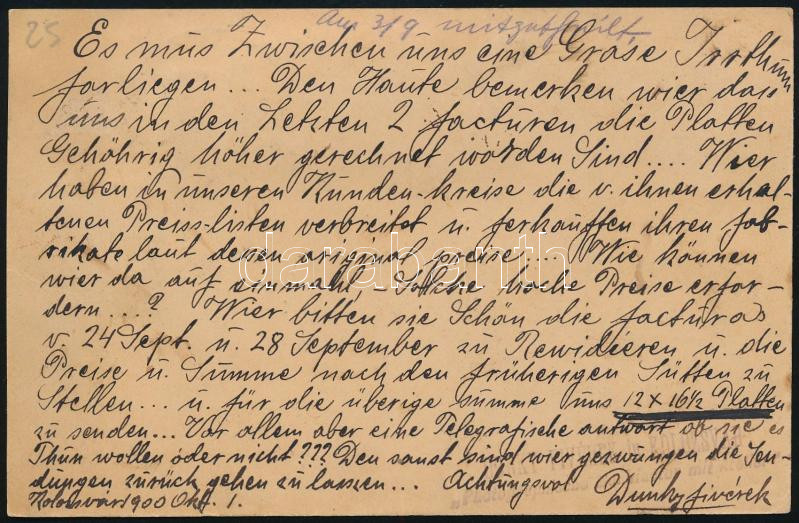 25
Es mus Zwischen uns eine Grose Irrthum
forliegen... Den Haute bemerken wier das
uns in den Letzten 2 facturen die Platten
Gehöhrig höher gerechnet worden Sind.... Wier
haben in unseren Kunden-kreise die v. ihnen erhal-
tenen Preiss-listen verbreitet u. ferkauften ihren fab-
rikate laut denen original preise.... Wie können
wier da auf einmahl - Solche hoche Preise erfor-
dern....? Wier bitten sie Schön die facturas
v. 24 Sept. u. 28 September zu Rewideeren u. die
Preise u. Summe nach den früherigen Sätten zu
Stellen... u. für die überige summe uns 12 x 16½ Platten
zu senden... Vor allem aber eine Telegrafische antwort ob sie es
Thun wollen oder nicht??? Den sonst sind wier gezwungen die Sen-
dungen zurück gehen zu lassen... Achtungsvol
Kolozsvár 1900 Okt. 1. Dunky fivérek
darabanth